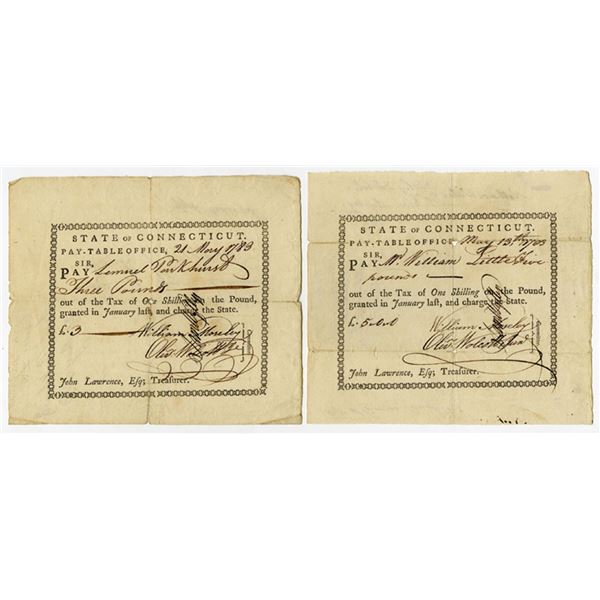 STATE OF CONNECTICUT.
PAY-TABLE OFFICE, 21 May 1783
SIR,
PAY Lemuel Parkhurst
Three Pounds
out of the Tax of One Shilling on the Pound,
granted in January laſt, and charge the State.
£. 3 William Moseley
Olivr Wolcott Jr
John Lawrence, Eſq; Treaſurer.
STATE OF CONNECTICUT.
PAY-TABLE OFFICE, May 13th 1783
SIR,
PAY Mr William Little Five
pounds
out of the Tax of One Shilling on the Pound,
granted in January laſt, and charge the State.
£. 5.0.0 William Moseley
Olivr Wolcott Jun
John Lawrence, Eſq; Treaſurer.